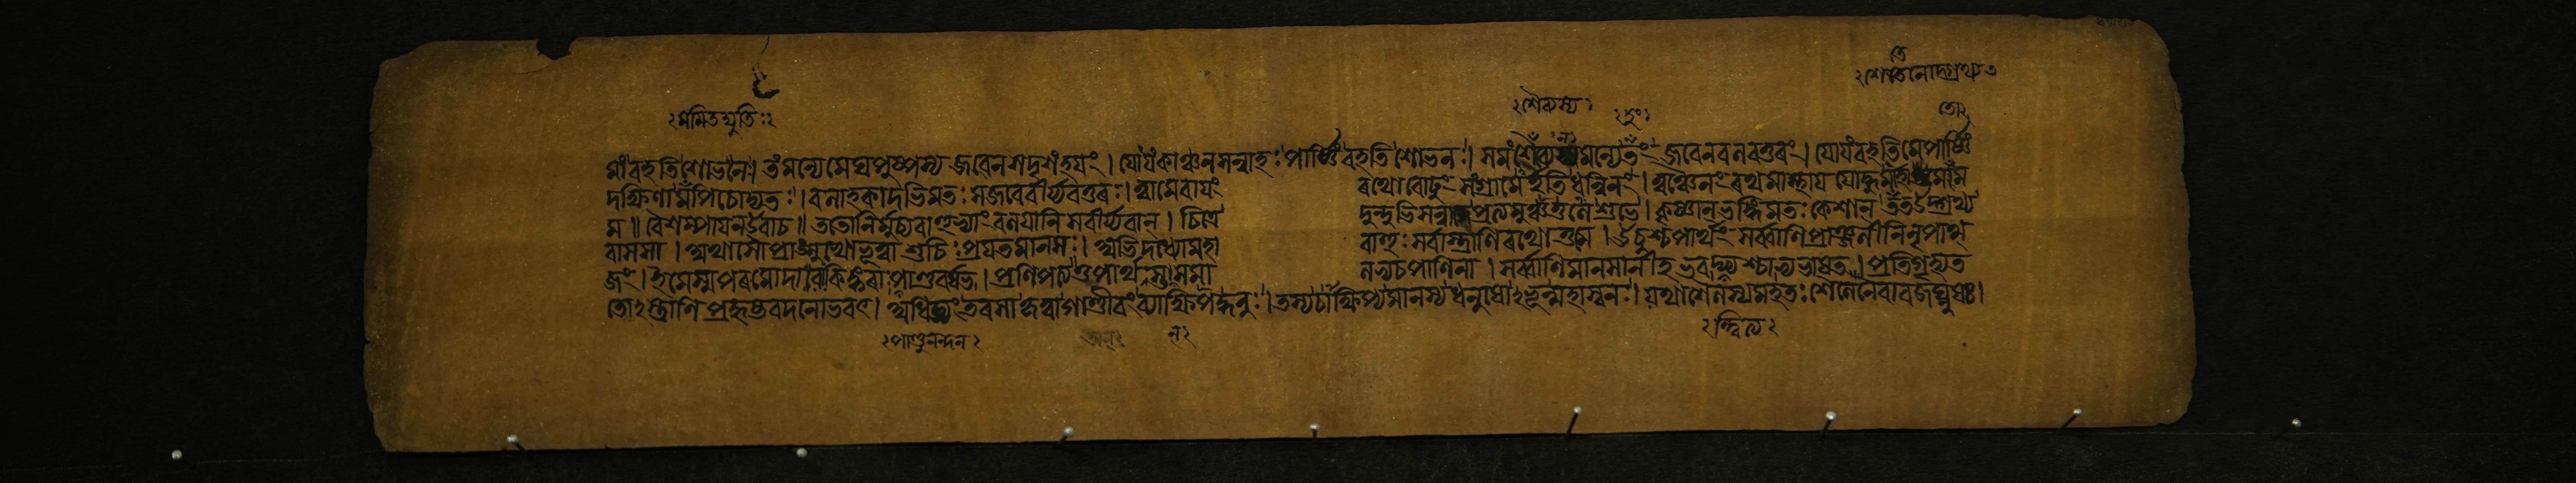 সমিতদ্যুতিঃ
শৈব্যস্য
মাং বহতি শোভনঃ। তং মন্যে মেঘপুষ্পস্য জবেন সদৃশং হযং। যোযং কাঞ্চনসন্নাহঃ পার্ষ্ণিং বহতি শোভনঃ। সমং শৈব্যস্য মন্যে তং জবেন বলবত্তরং। যোযং বহতি মে পার্ষ্ণিং
দক্ষিণামপি চোদ্যতঃ। বলাহকাদভিমতঃ স জবে বীর্য্যবত্তরঃ। ত্বামেবাযং রথো বোঢুং সংগ্রামে র্হতি ধন্বিনং। ত্বঞ্চৈনং রথমাস্থায যোদ্ধুমর্হ
ম॥ বৈশম্পাযন উবাচ॥ ততো নির্মুচ্য বাহুভ্যাং বলযানি স বীর্য্যবান্। চিত্রে দুন্দুভিসন্নাদে প্রত্যমুঞ্চত্তলে শুভে। কৃষ্ণান্ ভঙ্গিমতঃ কেশান্ উদ্গ্রথ্য
বাসসা। অথাসৌ প্রাঙ্মুখো ভূত্বা শুচিঃ প্রযতমানসঃ। অভিদধ্যৌ মহা বাহুঃ সর্বাস্ত্রাণি রথোত্তমে। ঊচুশ্চ পার্থং সর্ব্বাণি প্রাঞ্জলীনি নৃপাত্ম
জং। ইমে স্ম পরমোদারাঃ কিঙ্করাঃ প্রণিপত্য পার্থঃ সমা লভ্য চ পাণিনা। সর্ব্বাণি মানসানীহ ভব প্রতিগৃহ্য ত
তোঽস্ত্রাণি প্রহৃষ্টবদনোভবৎ। অধিজ্যং তরসা কৃত্বা গাণ্ডীবং ব্যাক্ষিপদ্ধনুঃ। তস্য ক্ষিপ্যমানস্য ধনুষোঽভূন্মহাস্বনঃ। যথা শৈলস্য মহতঃ শৈলেনৈবাবজঘ্নুষঃ।
পাণ্ডুনন্দন